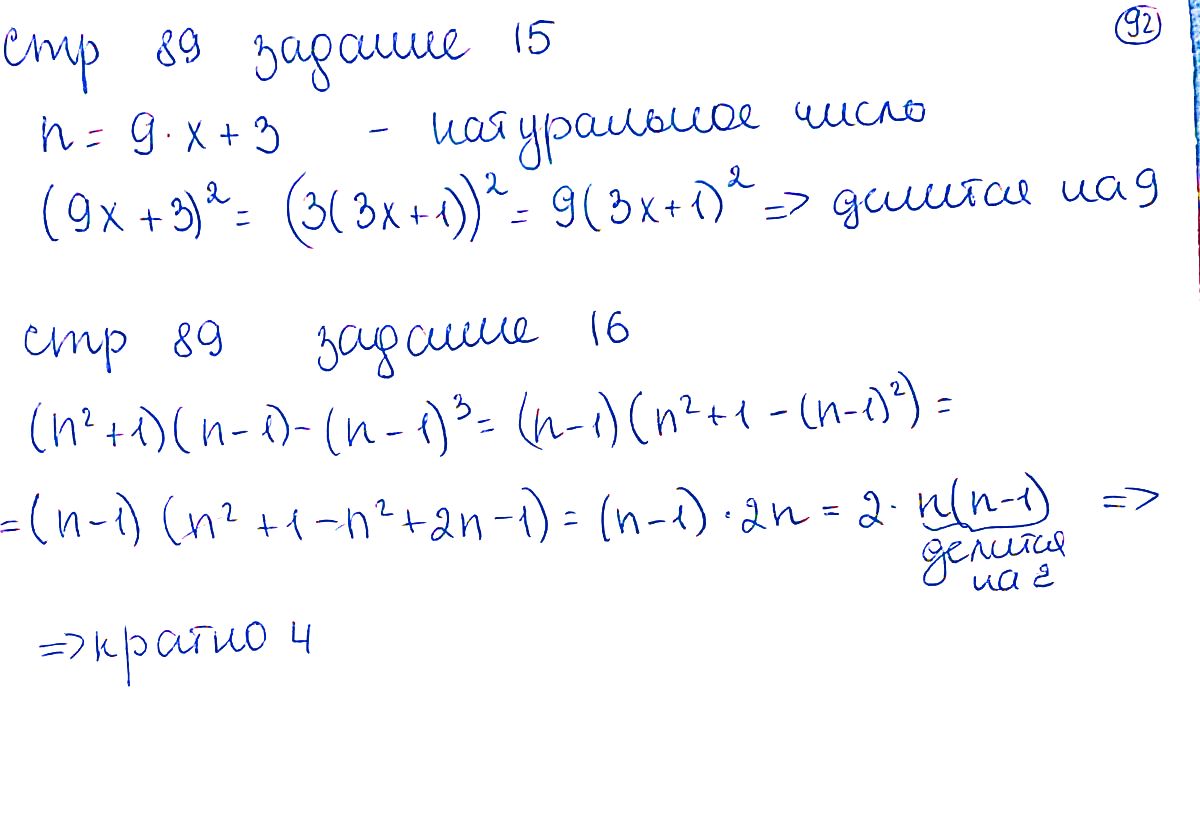 92
стр 89 задание 15
n = 9·x + 3 - натуральное число
(9x + 3)² = (3(3x+1))² = 9(3x+1)² => делится на 9
стр 89 задание 16
(n²+1)(n-1)-(n-1)³ = (n-1)(n²+1-(n-1)²) =
= (n-1)(n²+1-n²+2n-1) = (n-1)·2n = 2·n(n-1) =>
делится
на 2
=> кратно 4